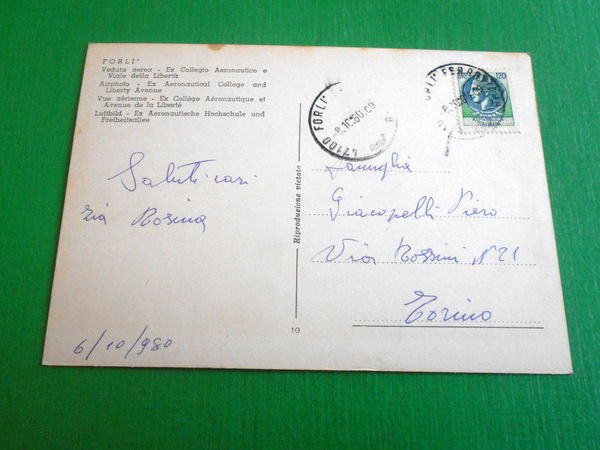 FORLI'
Veduta aerea - Ex Collegio Aeronautico e
Viale della Libertà
Airphoto - Ex Aeronautical College and
Liberty Avenue
Vue aérienne - Ex Collège Aéronautique et
Avenue de la Liberté
Luftbild - Ex Aeronautische Hochschule und
Freiheitsallee
Saluti cari
Zia Rosina
6/10/980
Riproduzione vietata
10
47100 FORLI'
120
Famiglia
Giacopelli Piero
Via Rossini N 21
Torino